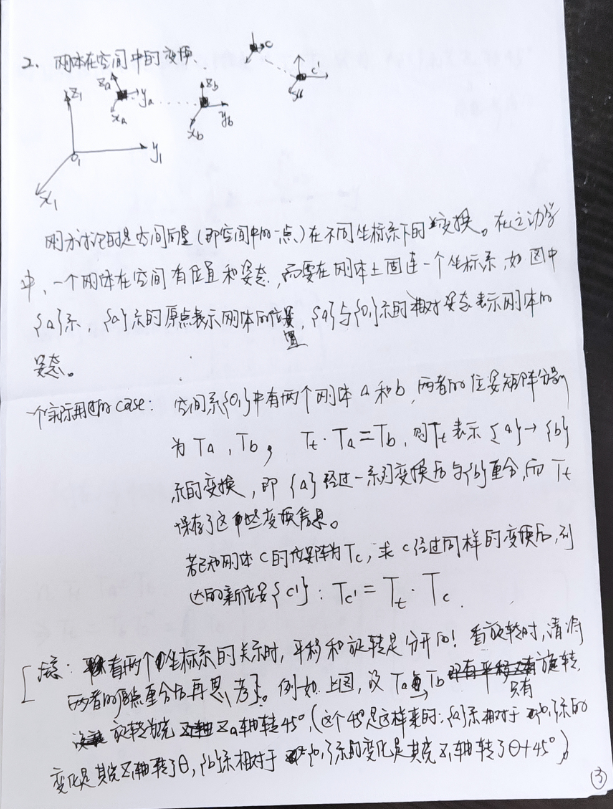 2、刚体在空间中的变换.
z₁ y₁ x₁ o₁
za ya xa
zb yb xb
c
c'
刚才讨论的是空间向量(即空间中的一点)在不同坐标系下的变换。在运动学
中，一个刚体在空间有位置和姿态，需要在刚体上固连一个坐标系，如图中
{a}系，{a}系的原点表示刚体的位置，{a}与{o₁}系的相对姿态表示刚体的
姿态。
一个实际用途的case: 空间系{o₁}中有两个刚体a和b，两者的位姿矩阵分别
为Ta，Tb， Tt·Ta=Tb，则Tt表示{a}→{b}
系的变换，即{a}经过一系列变换后与{b}重合，而Tt
保存了这些变换信息。
若已知刚体C的位姿阵为Tc，求C经过同样的变换后，到
达的新位姿{c'}: Tc'=Tt·Tc
[注意: 看两个坐标系的关系时，平移和旋转是分开的! 看旋转时，请将
两者的原点重合后再思考}。例如上图，设Ta到Tb只有旋转
旋转为绕za轴转45°，(这个45°是这样来的: {a}系相对于{o₁}系的
变化是其绕z₁轴转了θ，{b}系相对于{o₁}系的变化是其绕z₁轴转了θ+45°)
③